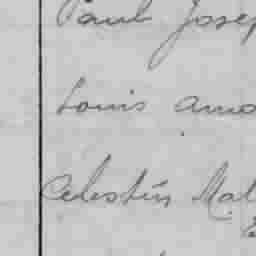 Paul Josep
Louis Amo
Celestin Mal